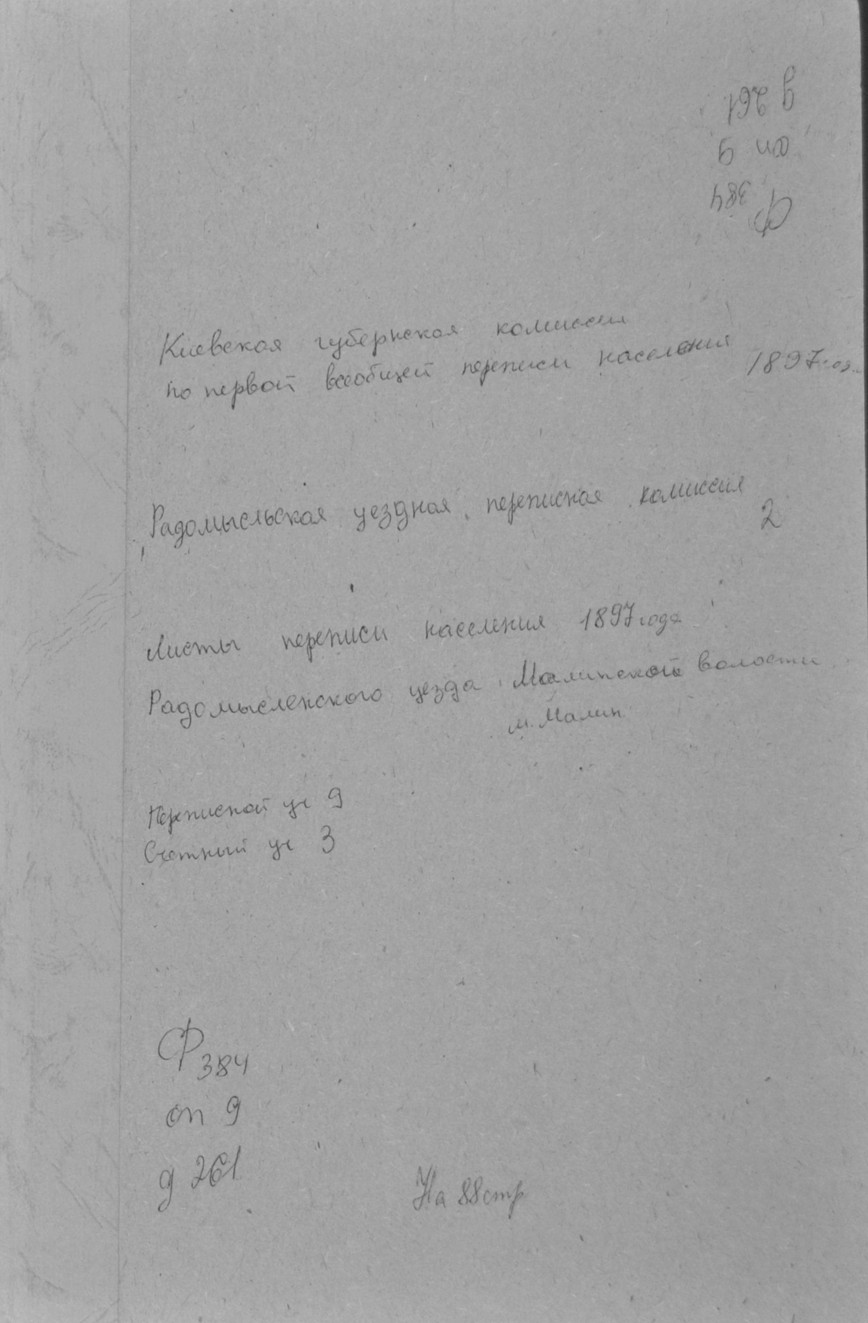 Ф 384
оп 9
д 261
Киевская губернская комиссия
по первой всеобщей переписи населения 1897
Радомысльская уездная переписная комиссия
2
Листы переписи населения 1897 года
Радомысленского уезда Малинской волости
м. Малин
Переписной уч 9
Счетный уч 3
Ф 384
оп 9
д 261
На 88 стр